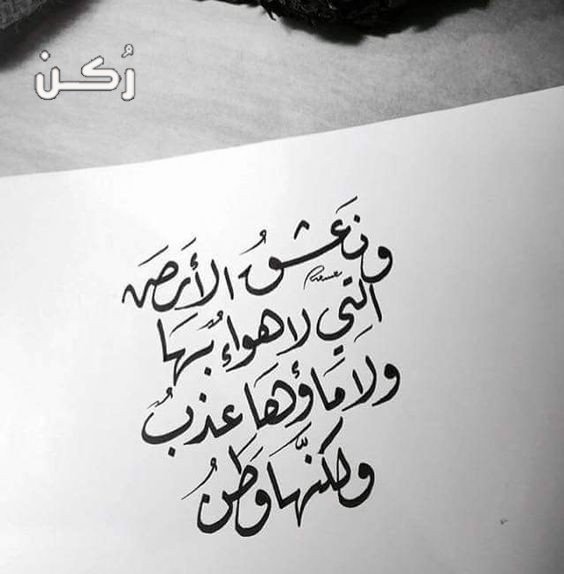 رُكن
ونَعشقُ الأَرضَ
التِي لا هواءٌ بِهَا
ولا مَاؤهَا عذبٌ
ولكنَّهَا وَطَنُ